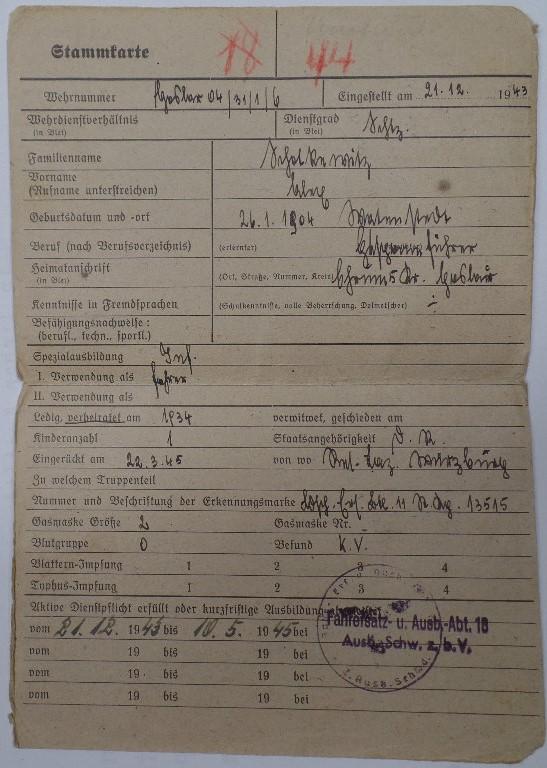 Stammkarte 18 44
Wehrnummer Goslar 04/31/1/6 Eingestellt am 21.12. 1943
Wehrdienstverhältnis (in Blei) Dienstgrad (in Blei) Schtz.
Familienname
Vorname (Rufname unterstreichen)
Geburtsdatum und -ort 26.1.1904 Watenstedt
Beruf (nach Berufsverzeichnis) (erlernter)
Heimatanschrift (in Blei) (Ort, Straße, Nummer, Kreis) Kr. Goslar
Kenntnisse in Fremdsprachen (Schulkenntnisse, volle Beherrschung, Dolmetscher)
Befähigungsnachweise: (berufl., techn., sportl.)
Spezialausbildung Inf.
I. Verwendung als Fahrer
II. Verwendung als
Ledig, verheiratet am 1934 verwitwet, geschieden am
Kinderanzahl 1 Staatsangehörigkeit D. R.
Eingerückt am 22.3.45 von wo Res. Laz. Würzburg
Zu welchem Truppenteil
Nummer und Beschriftung der Erkennungsmarke 13515
Gasmaske Größe 2 Gasmaske Nr. -
Blutgruppe O Befund K.V.
Blattern-Impfung 1 2 3 4
Typhus-Impfung 1 2 3 4
Aktive Dienstpflicht erfüllt oder kurzfristige Ausbildung
vom 21.12. 1943 bis 10.5. 1945 bei Fahrersatz- u. Ausb.-Abt. 18
Ausb.-Schw. z. b. V.
vom 19 bis 19 bei
vom 19 bis 19 bei
vom 19 bis 19 bei